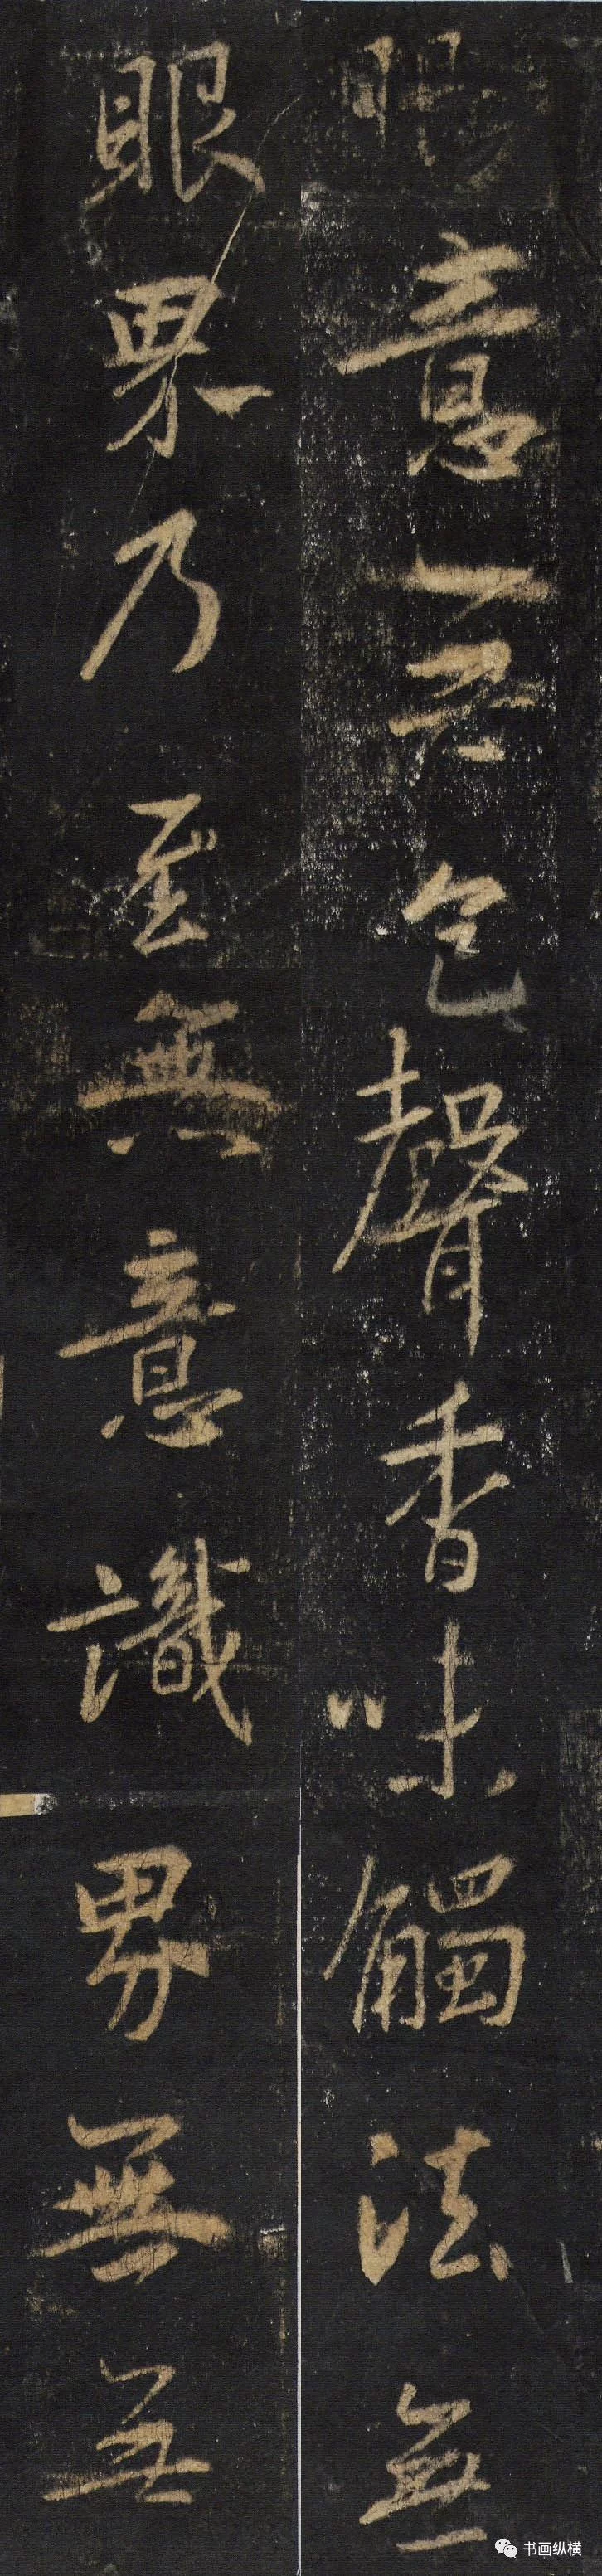 意無色聲香味觸法無
眼界乃至無意識界無無
书画纵横